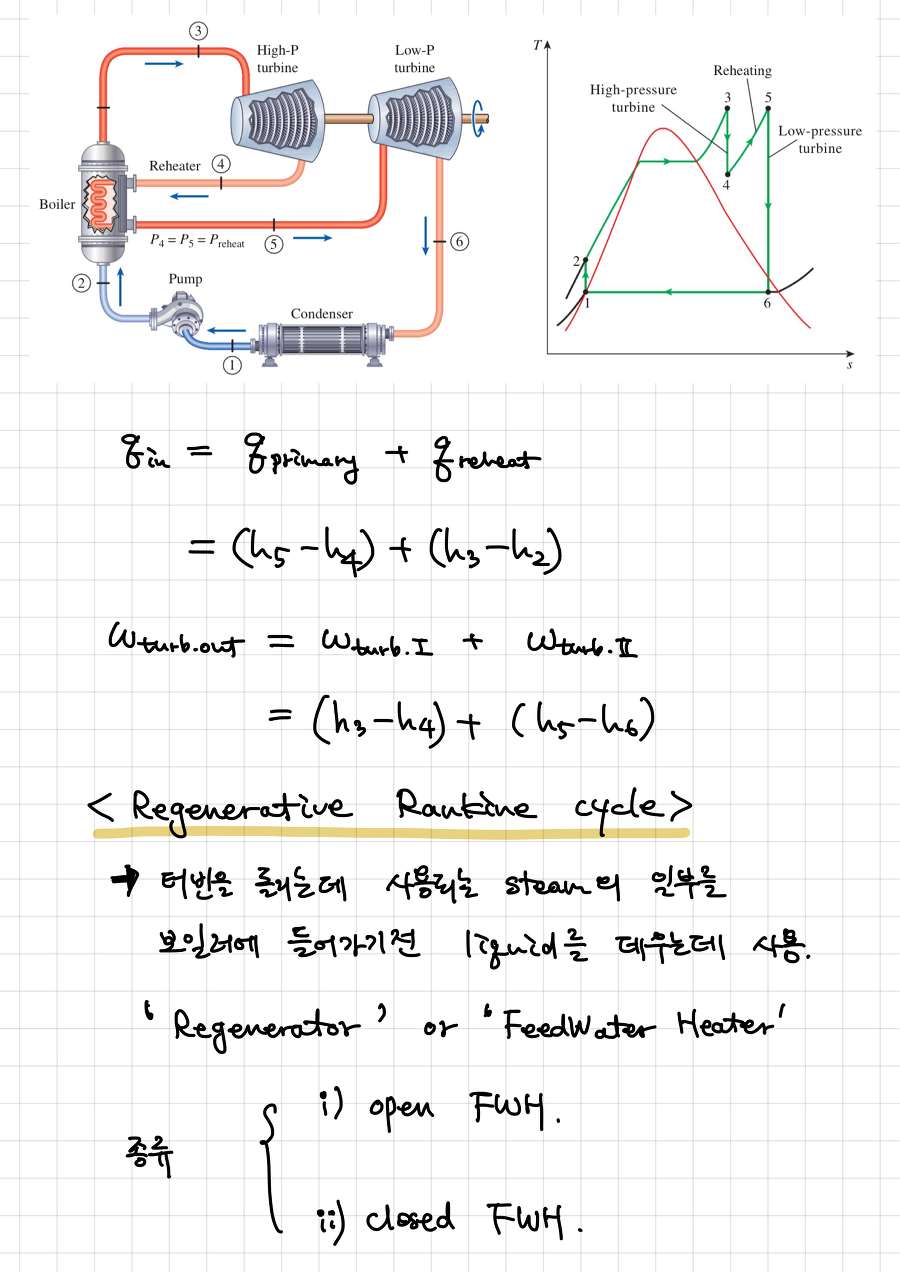 ③
High-P
turbine
Low-P
turbine
Reheater ④
Boiler
P4 = P5 = Preheat ⑤
⑥
②
Pump
Condenser
①
T
Reheating
High-pressure
turbine
3
5
Low-pressure
turbine
4
2
1
6
s
q in = q primary + q reheat
= (h5-h4) + (h3-h2)
w turb.out = w turb.I + w turb.II
= (h3-h4) + (h5-h6)
< Regenerative Rankine cycle >
→ 터빈을 돌리는데 사용되는 steam의 일부를
보일러에 들어가기전 liquid를 데우는데 사용.
' Regenerator ' or ' FeedWater Heater '
종류
i) open FWH.
ii) closed FWH.